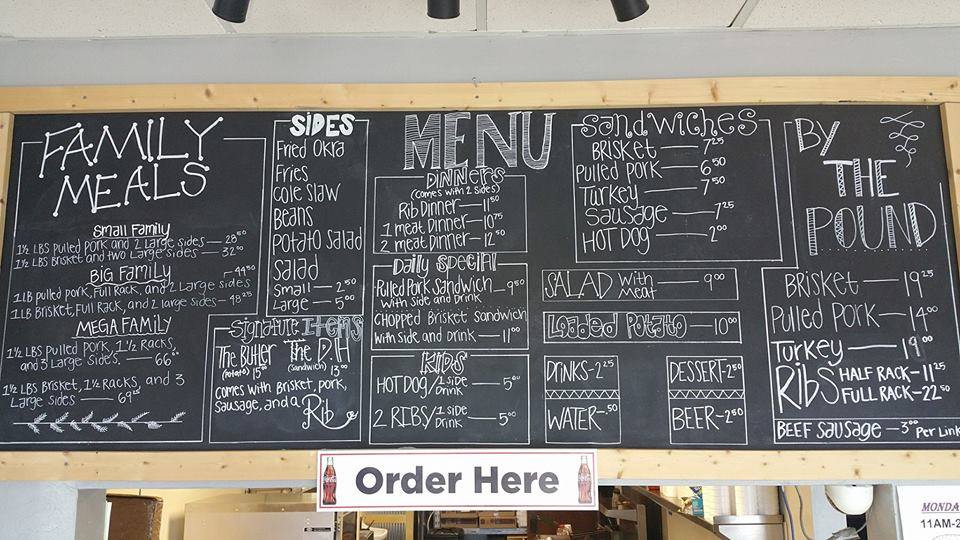 FAMILY
MEALS
Small Family
1½ LBS Pulled Pork and 2 Large sides — 28⁵⁰
1½ LBS Brisket and two Large sides — 32⁰⁰
BiG Family
1 LB pulled pork, Full Rack, and 2 Large sides — 44⁵⁰
1 LB Brisket, Full Rack, and 2 large sides — 48²⁵
MEGA FAMILY
1½ LBS Pulled Pork, 1½ Racks,
and 3 Large Sides. — 66⁰⁰
1½ LBS Brisket, 1½ Racks, and 3
Large sides — 69²⁵
SiDES
Fried Okra
Fries
Cole Slaw
Beans
Potato Salad
Salad
Small — 2⁵⁰
Large — 5⁰⁰
Signature Items
The Butler
(Potato) 15⁰⁰
The D.H
(Sandwich) 13⁰⁰
comes with Brisket, pork,
Sausage, and a
Rib
MENU
DiNNers
(comes with 2 sides)
Rib Dinner — 11⁵⁰
1 meat Dinner — 10⁷⁵
2 meat Dinner — 12⁵⁰
Daily Special
Pulled Pork Sandwich — 9⁵⁰
With side and Drink
Chopped Brisket Sandwich
With side and Drink — 11⁰⁰
KiDS
HOT DOG/1 side
Drink — 5⁰⁰
2 RIBS/1 side
Drink — 5⁰⁰
Sandwiches
BRiSKET — 7²⁵
Pulled Pork — 6⁵⁰
Turkey — 7⁵⁰
Sausage — 7²⁵
HOT DOG — 2⁰⁰
SALAD With
meat — 9⁰⁰
Loaded Potato — 10⁰⁰
DRiNKS - 2²⁵
WATER - .50
DESSERT - 2⁵⁰
BEER - 2⁵⁰
By
THE
POUND
BRiSKET — 19²⁵
Pulled Pork — 14⁰⁰
Turkey — 19⁰⁰
RiBS HALF RACK - 11²⁵
FULL RACK - 22⁵⁰
BEEF SAUSAGE — 3⁰⁰ Per Link
Coca-Cola
Order Here
Coca-Cola
MONDA
11AM-2